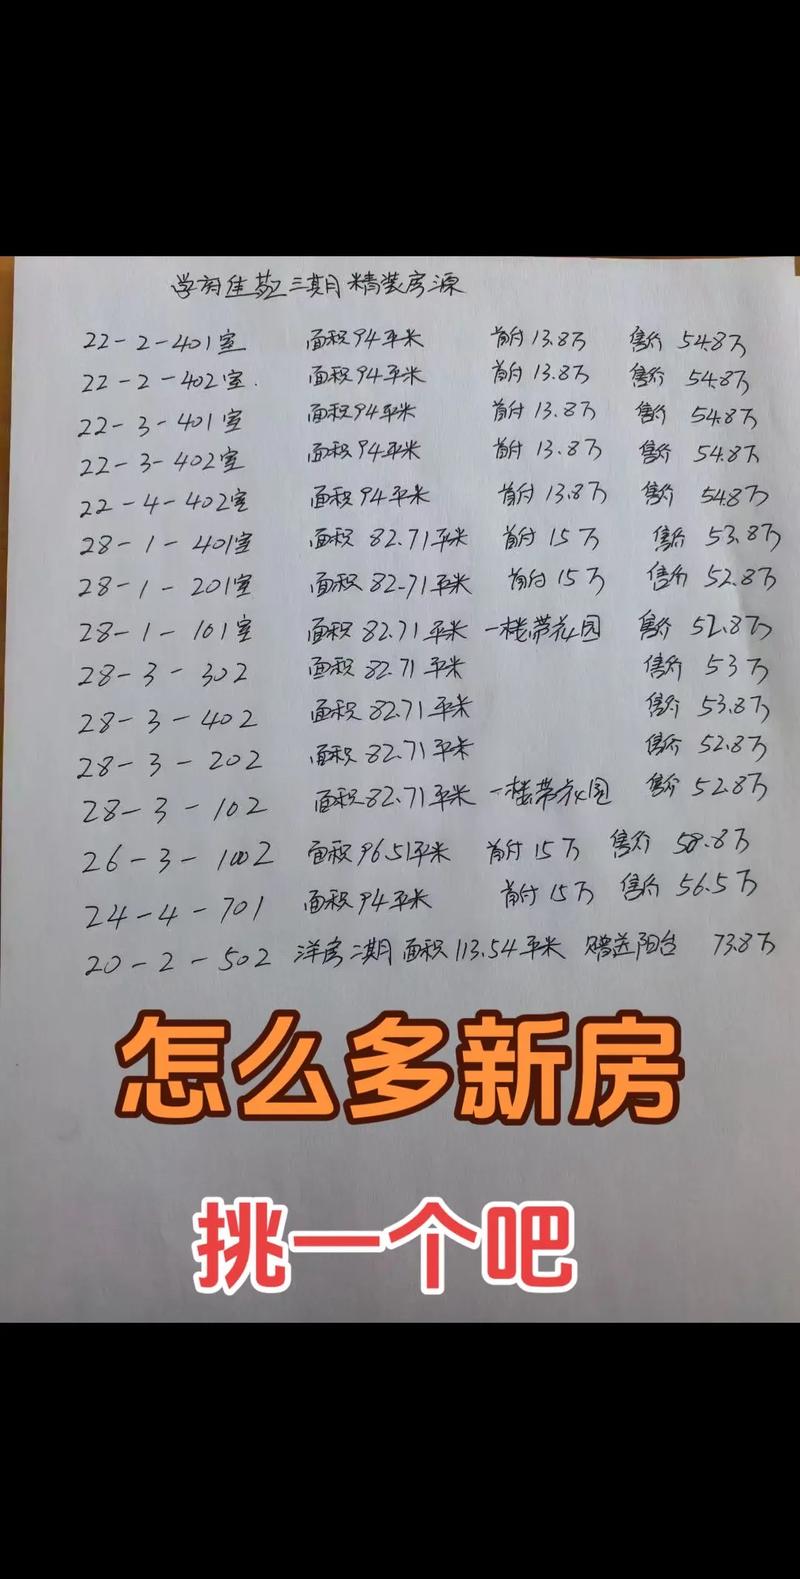 学府佳苑三期精装房源
22-2-401室 面积94平米 首付13.8万 售价 54.8万
22-2-402室. 面积94平米 首付13.8万 售价 54.8万
22-3-401室 面积94平米 首付13.8万 售价 54.8万
22-3-402室 面积94平米 首付13.8万 售价 54.8万
22-4-402室 面积94平米 首付13.8万 售价 54.8万
28-1-401室 面积 82.71平米 首付15万 售价 53.8万
28-1-201室 面积 82.71平米 首付15万 售价 52.8万
28-1-101室 面积 82.71平米 一楼带花园 售价 52.8万
28-3-302 面积 82.71平米 售价 53万
28-3-402 面积 82.71平米 售价 53.8万
28-3-202 面积 82.71平米 售价 52.8万
28-3-102 面积 82.71平米 一楼带花园 售价 52.8万
26-3-1002 面积 96.51平米 首付15万 售价 58.8万
24-4-701 面积94平米 首付15万 售价 56.5万
20-2-502 洋房二期 面积113.54平米 赠送阳台 73.8万
怎么多新房
挑一个吧